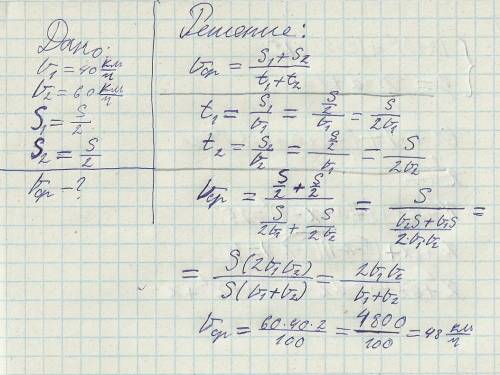 Дано:
υ₁ = 40 км/ч
υ₂ = 60 км/ч
S₁ = S/2
S₂ = S/2
υср – ?
Решение:
υср = (S₁ + S₂)/(t₁ + t₂)
t₁ = S₁/υ₁ = (S/2)/υ₁ = S/(2υ₁)
t₂ = S₂/υ₂ = (S/2)/υ₁ = S/(2υ₂)
υср = (S/2 + S/2)/(S/(2υ₁) + S/(2υ₂)) = S/((υ₂S + υ₁S)/(2υ₁υ₂)) =
= S(2υ₁υ₂)/(S(υ₁+υ₂)) = 2υ₁υ₂/(υ₁+υ₂)
υср = (60·40·2)/100 = 4800/100 = 48 км/ч